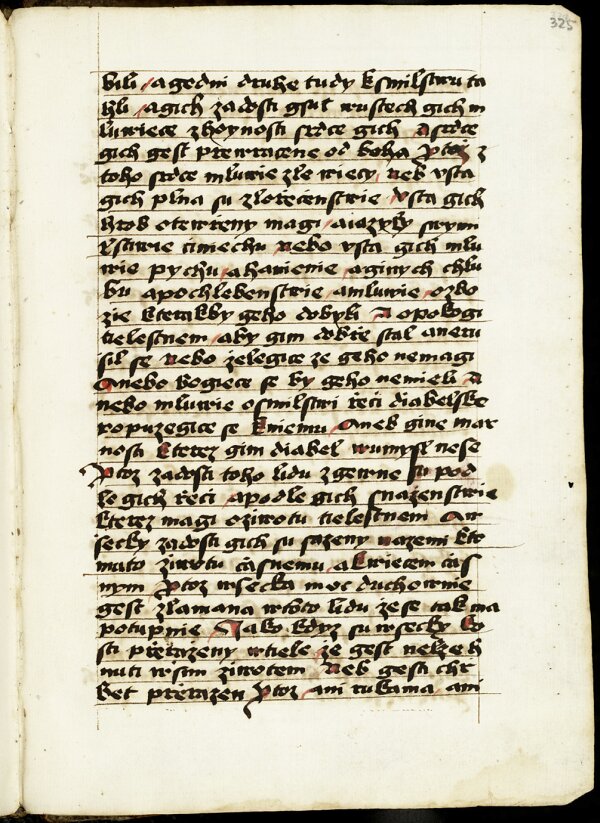 325
bili / a gedni druhe tudy k smilstwu ta
hli / a gich zadosti gsut w ustech gich m
luwiece z hoynosti srdce gich A srdce
gich gest prewracene od boha Protoz z
toho srdce mluwie zle wieczy nebo usta
gich plna su zlorzecenstwie Usta gich
hrob otewrzeny magi a iazyky swymi
lstiwie ciniechu nebo usta gich mlu
wie pychu a hanienie a ginych chlu
bu a pochlebenstwie a mluwie o zbo
zie kterakby geho dobyli A o pokogi
tielestnem aby gim dobrze stal a netu
sil se nebo zelegice ze geho nemagi
Anebo bogiece se by geho nemieli A
nebo mluwie o smilstwi rzeci diabelske
popuzegice se k niemu Anebo gine mar
nosti kterez gim diabel w umysl nese
Protoz zadosti toho lidu zgewne su pod
le gich rzeci a podle gich snazenstwie
kterez magi o ziwotu tielestnem A w
secky zadosti gich su sazeny na zemi k to
muto ziwotu casnemu a k wiecem cas
nym Protoz wsecka moc duchownie
gest zlamana w tomto lidu ze se tak ma
potupnie Jako kdyz su wsecky ko
sti prerazeny w tiele ze gest nelze h
nuti wsim ziwotem Neb gestli chr
bet prerazen Protoz ani rukama ani